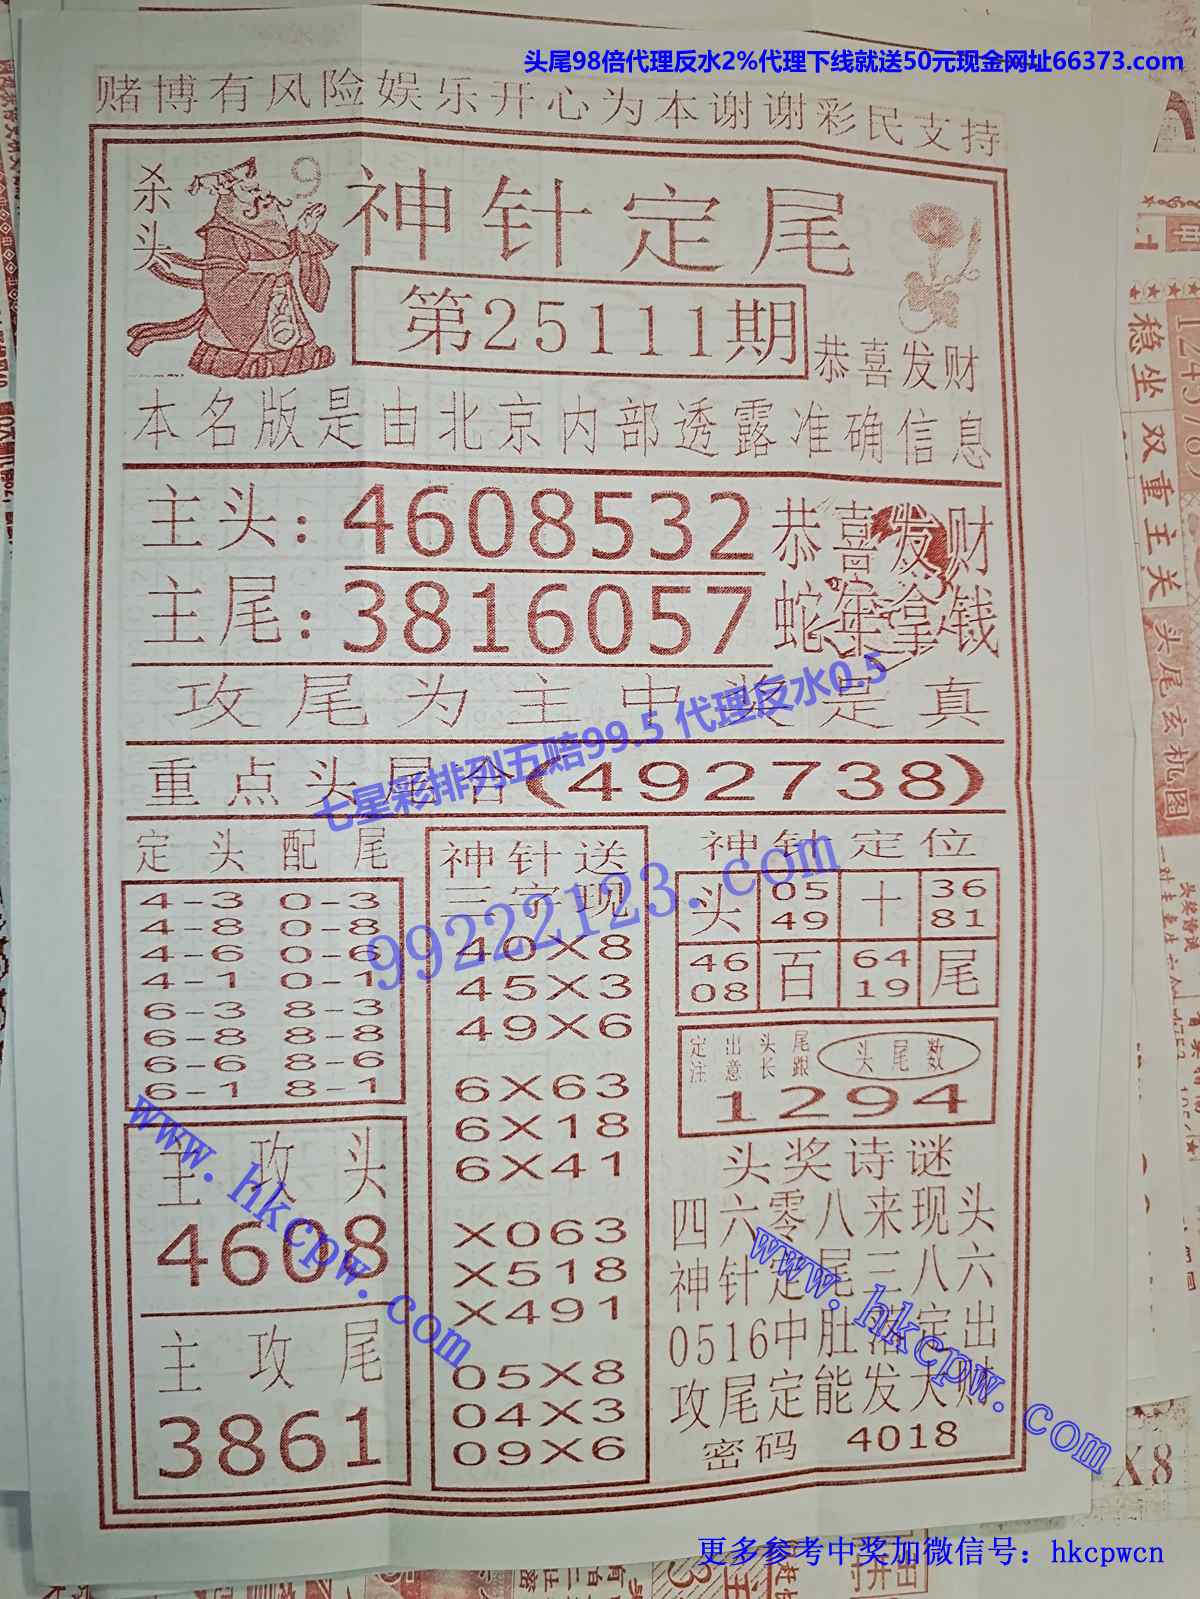 头尾98倍代理反水2%代理下线就送50元现金网址66373.com
赌博有风险娱乐开心为本谢谢彩民支持
杀头
9
神针定尾
第25111期
恭喜发财
本名版是由北京内部透露准确信息
主头:4608532
恭喜发财
主尾:3816057
蛇年拿钱
攻尾为主中奖是真
七星彩排列五赔99.5 代理反水0.5
重点头尾合(492738)
99222123.com
定头配尾
4-3 0-3
4-8 0-8
4-6 0-6
4-1 0-1
6-3 8-3
6-8 8-8
6-6 8-6
6-1 8-1
主攻头
4608
主攻尾
3861
www.hkcpw.com
神针送
三字现
40X8
45X3
49X6
6X63
6X18
6X41
X063
X518
X491
05X8
04X3
09X6
神针定位
头 05 49 十 36 81
46 08 百 64 19 尾
定出头尾
注意长跟
头尾数
1294
头奖诗谜
四六零八来现头
神针定尾三八六
0516中肚落定出
攻尾定能发大财
密码 4018
www.hkcpw.com
稳坐双重主关
头尾玄机图
X8
更多参考中奖加微信号：hkcpwcn